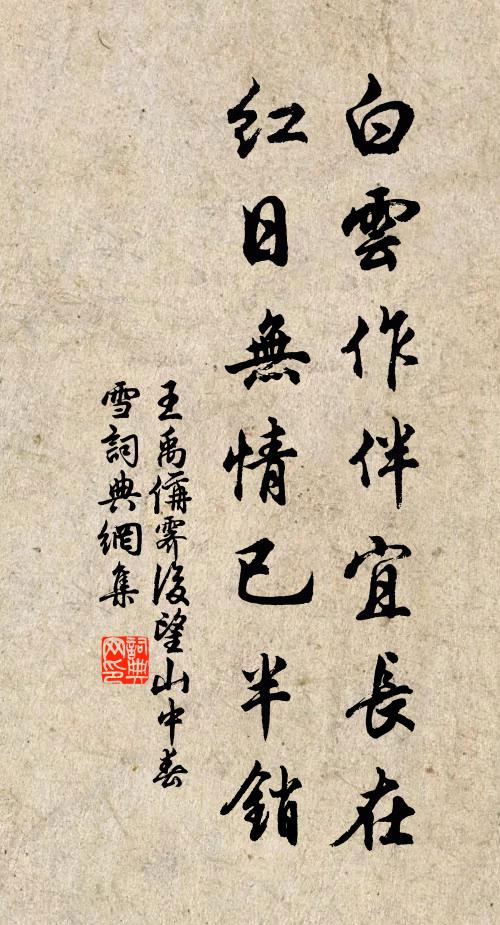 白雲作伴宜長在
紅日無情已半銷
王禹偁霽後望山中春
雪詞典網集
詞典网印